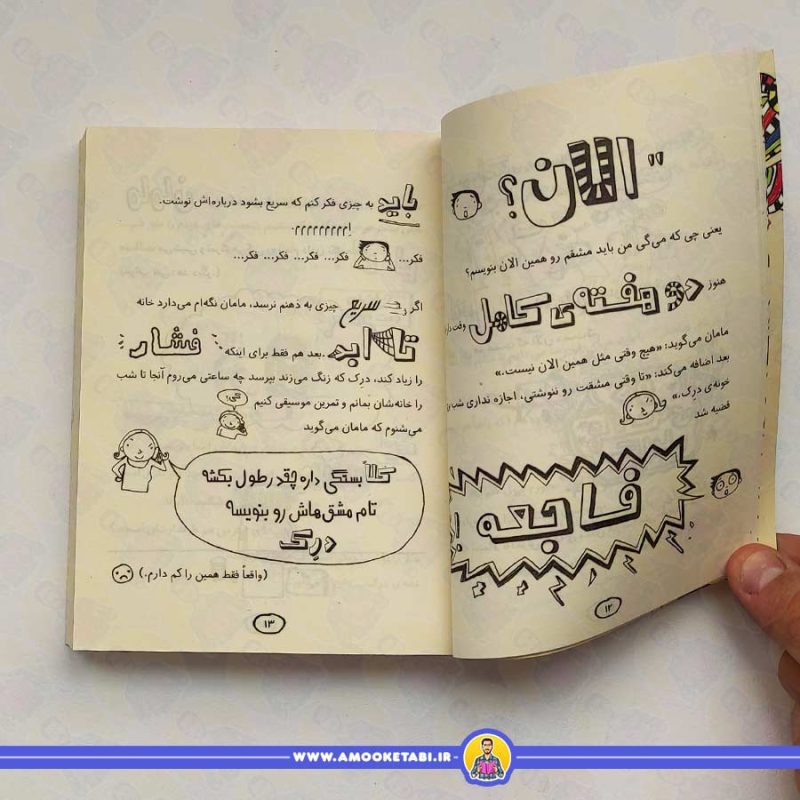 "الان؟
یعنی چی که می‌گی من باید مشقم رو همین الان بنویسم؟
هنوز دو هفته‌ی کامل وقت
مامان می‌گوید: «هیچ وقتی مثل همین الان نیست.»
بعد اضافه می‌کند: «تا وقتی مشقت رو ننوشتی، اجازه نداری شب
خونه‌ی درک.»
قضیه شد
فاجعه
۱۲
باید به چیزی فکر کنم که سریع بشود درباره‌اش نوشت.
فکر... فکر... فکر... فکر... فکر...
اگر سریع چیزی به ذهنم نرسد، مامان نگه‌ام می‌دارد خانه
تا ابد. بعد هم فقط برای اینکه فشار
را زیاد کند، درک که زنگ می‌زند بپرسد چه ساعتی می‌روم آنجا تا شب
را خانه‌شان بمانم و تمرین موسیقی کنیم
می‌شنوم که مامان می‌گوید
کی؟
کلاً بستگی داره چقدر طول بکشه
تام مشق‌هاش رو بنویسه
درک
(واقعاً فقط همین را کم دارم.)
۱۳
WWW.AMOOKETABI.IR